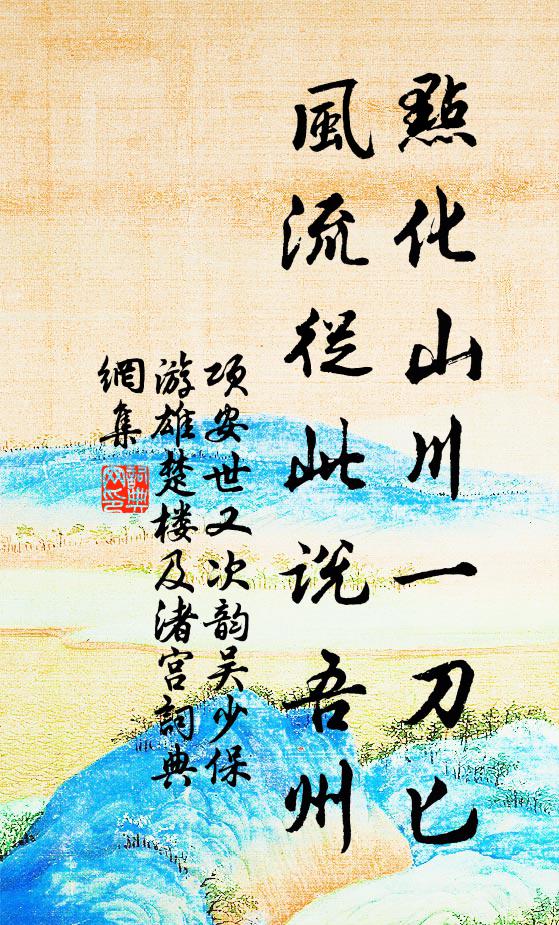 點化山川一刀匕
風流從此説吾州
项安世又次韵吴少保
游雄楚楼及渚宫詞典
網集
詞典網印